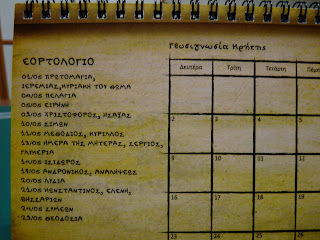 Γευσιγνωσία Κρήτης
ΕΟΡΤΟΛΟΓΙΟ
01/05 ΠΡΩΤΟΜΑΓΙΑ,
ΙΕΡΕΜΙΑΣ,ΚΥΡΙΑΚΗ ΤΟΥ ΘΩΜΑ
04/05 ΠΕΛΑΓΙΑ
05/05 ΕΙΡΗΝΗ
09/05 ΧΡΙΣΤΟΦΟΡΟΣ, ΗΣΑΪΑΣ
10/05 ΣΙΜΩΝ
11/05 ΜΕΘΟΔΙΟΣ, ΚΥΡΙΛΛΟΣ
13/05 ΗΜΕΡΑ ΤΗΣ ΜΗΤΕΡΑΣ, ΣΕΡΓΙΟΣ,
ΓΛΥΚΕΡΙΑ
14/05 ΙΣΙΔΩΡΟΣ
ΑΝΔΡΟΝΙΚΟΣ, ΑΝΑΛΗΨΩΣ
20/05 ΛΥΔΙΑ
21/05 ΚΩΝΣΤΑΝΤΙΝΟΣ, ΕΛΕΝΗ,
ΒΗΣΣΑΡΙΩΝ
24/05 ΣΥΜΕΩΝ
29/05 ΘΕΟΔΟΣΙΑ
Δευτέρα Τρίτη Τετάρτη Πέμπ
2 3 4 5
9 10 11 12
16 17 18 19
23 24 25 26